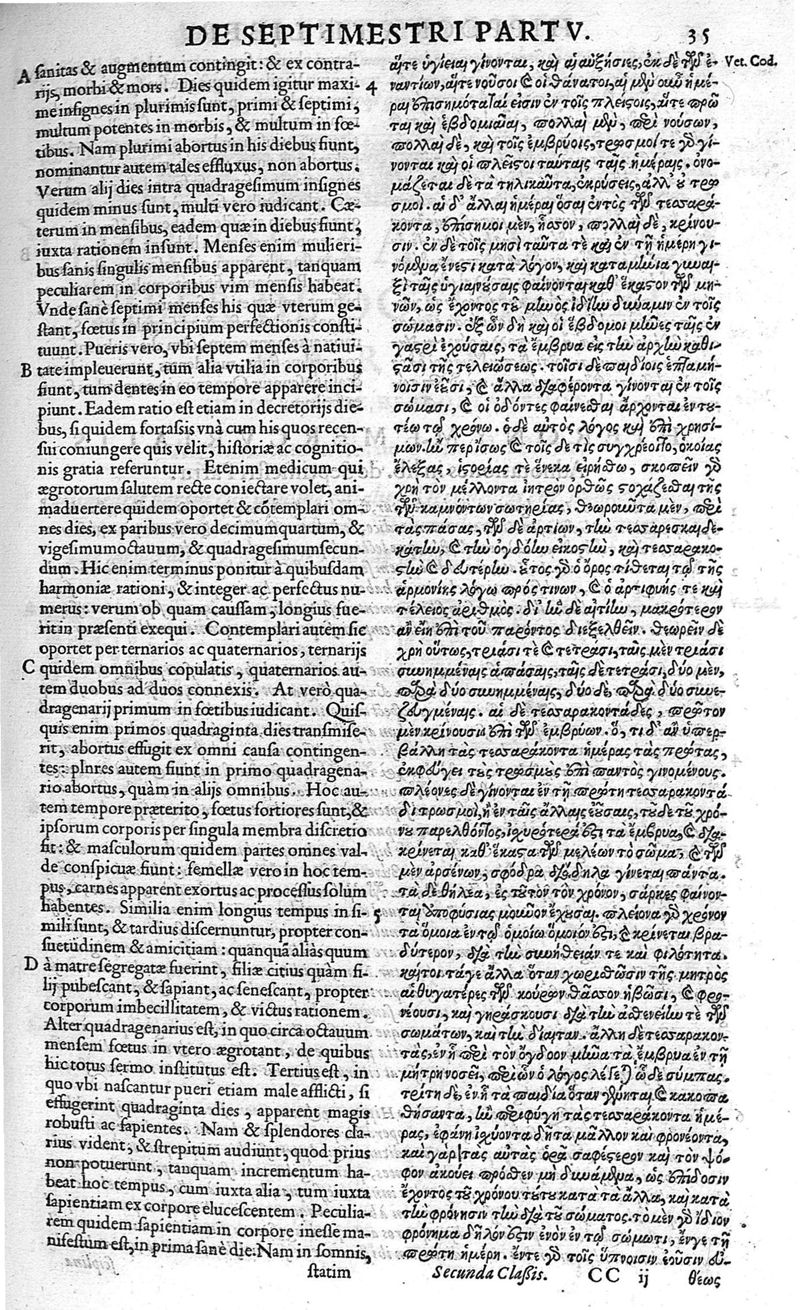 DE SEPTIMESTRI PARTV.
35
A sanitas & augmentum contingit: & ex contra-
rijs, morbi & mors. Dies quidem igitur maxi-
me insignes in plurimis sunt, primi & septimi,
multum potentes in morbis, & multum in fœ-
tibus. Nam plurimi abortus in his diebus fiunt,
nominantur autem tales effluxus, non abortus.
Verum alij dies intra quadragesimum insignes
quidem minus sunt, multi vero iudicant. Cæ-
terum in mensibus, eadem quæ in diebus fiunt,
iuxta rationem insunt. Menses enim mulieri-
bus sanis singulis mensibus apparent, tanquam
peculiarem in corporibus vim mensis habeat.
Vnde sanè septimi menses his quæ vterum ge-
stant, fœtus in principium perfectionis consti-
tuunt. Pueris vero, vbi septem menses à natiui-
B tate impleuerunt, tum alia vtilia in corporibus
fiunt, tum dentes in eo tempore apparere inci-
piunt. Eadem ratio est etiam in decretorijs die-
bus, si quidem fortassis vnà cum his quos recen-
sui coniungere quis velit, historiæ ac cognitio-
nis gratia referuntur. Etenim medicum qui
ægrotorum salutem recte coniectare volet, ani-
maduertere quidem oportet & cõtemplari om-
nes dies, ex paribus vero decimumquartum, &
vigesimumoctauum, & quadragesimumsecun-
dum. Hic enim terminus ponitur à quibusdam
harmoniæ rationi, & integer ac perfectus nu-
merus: verum ob quam caussam, longius fue-
rit in præsenti exequi. Contemplari autem sic
oportet per ternarios ac quaternarios, ternarijs
C quidem omnibus copulatis, quaternarios au-
tem duobus ad duos connexis. At verò qua-
dragenarij primum in fœtibus iudicant. Quis-
quis enim primos quadraginta dies transmise-
rit, abortus effugit ex omni causa contingen-
tes: plures autem fiunt in primo quadragena-
rio abortus, quàm in alijs omnibus. Hoc au-
tem tempore præterito, fœtus fortiores sunt, &
ipsorum corporis per singula membra discretio
fit: & masculorum quidem partes omnes val-
de conspicuæ fiunt: femellæ vero in hoc tem-
pus, carnes apparent exortus ac processus solum
habentes. Similia enim longius tempus in si-
mili sunt, & tardius discernuntur, propter con-
suetudinem & amicitiam: quanquã aliàs quum
D à matre segregatæ fuerint, filiæ citius quàm fi-
lij pubescant, & sapiant, ac senescant, propter
corporum imbecillitatem, & victus rationem.
Alter quadragenarius est, in quo circa octauum
mensem fœtus in vtero ægrotant, de quibus
hic totus sermo institutus est. Tertius est, in
quo vbi nascantur pueri etiam male afflicti, si
effugerint quadraginta dies, apparent magis
robusti ac sapientes. Nam & splendores cla-
rius vident, & strepitum audiunt, quod prius
non potuerunt, tanquam incrementum ha-
beat hoc tempus, cum iuxta alia, tum iuxta
sapientiam ex corpore elucescentem. Peculia-
rem quidem sapientiam in corpore inesse ma-
nifestum est, in prima sanè die. Nam in somnis,
statim
αἵτε ὑγίειαι γίνονται, καὶ αἱ αὐξήσιες, ἐκ δὲ τῶν ἐ- Vet. Cod.
4 ναντίων, αἵτε νοῦσοι καὶ οἱ θάνατοι, αἱ μὲν οὖν ἡμέ-
ραι ἐπισημόταταί εἰσιν ἐν τοῖς πλείστοις, αἵτε πρῶ
ται καὶ ἑβδομαῖαι, πολλαὶ μὲν, περὶ νούσων,
πολλαὶ δὲ, καὶ τοῖς ἐμβρύοις, τρωσμοί τε γὰρ γί-
νονται καὶ οἱ πλεῖστοι ταύταις ταῖς ἡμέραις. ὀνο-
μάζεται δὲ τὰ τηλικαῦτα, ἐκρύσεις, ἀλλ' οὐ τρω
σμοί. αἱ δ' ἄλλαι ἡμέραι ὅσαι ἐντὸς τῶν τεσσαρά-
κοντα, ἐπίσημοι μὲν, ἧσσον, πολλαὶ δὲ, κρίνου-
σιν. ἐν δὲ τοῖς μησὶ ταῦτα τε καὶ ἐν τῇ ἡμέρῃ γι-
νόμενα ἔνεστι κατὰ λόγον, καὶ καταμήνια γυναι-
ξὶ ταῖς ὑγιαινούσαις φαίνονται καθ' ἕκαστον τῶν μη-
νῶν, ὡς ἔχοντος τοῦ μηνὸς ἰδίην δύναμιν ἐν τοῖς
σώμασιν. ἐξ ὧν δὴ καὶ οἱ ἕβδομοι μῆνες ταῖς ἐν
γαστρὶ ἐχούσαις, τὰ ἔμβρυα εἰς τὴν ἀρχὴν καθι-
στᾶσι τῆς τελειώσεως. τοῖσι δὲ παιδίοις ἑπταμή-
νοισιν ἐοῦσι, καὶ ἄλλα διαφέροντα γίνονται ἐν τοῖς
σώμασι, καὶ οἱ ὀδόντες φαίνεσθαι ἄρχονται ἐν του-
τέῳ τῷ χρόνῳ. ὁ δὲ αὐτὸς λόγος καὶ ἐπὶ χρησί-
μων. ἢν περ ἴσως καὶ τοῖς δέ τις συγχρέοιτο, ὁκοίας
ἔλεξας, ἱστορίας τε ἕνεκα εἰρήσθω, σκοπεῖν γὰρ
χρὴ τὸν μέλλοντα ἰητρὸν ὀρθῶς στοχάζεσθαι τῆς
τῶν καμνόντων σωτηρίας, θεωροῦντα μὲν, περὶ
τὰς πάσας, τῶν δὲ ἀρτίων, τὴν τεσσαρεσκαιδε-
κάτην, καὶ τὴν ὀγδόην εἰκοστὴν, καὶ τεσσαρακο-
στὴν καὶ δευτέρην. ἔστι γὰρ ὁ ὅρος τίθεται τῷ τῆς
ἁρμονίης λόγῳ πρός τινων, καὶ ὁ ἀρτιφυής τε καὶ
τέλειος ἀριθμός. δι' ἣν δὲ αἰτίην, μακρότερον
ἂν εἴη ἐπὶ τοῦ παρόντος διεξελθεῖν. θεωρεῖν δὲ
χρὴ οὕτως, τριάσι τε καὶ τετράσι, ταῖς μὲν τριάσι
συνημμέναις ἁπάσαις, ταῖς δὲ τετράσι, δύο μὲν,
παρὰ δύο συνημμέναις, δύο δὲ, παρὰ δύο συνε-
ζευγμέναις. αἱ δὲ τεσσαρακοντάδες, πρῶτον
μὲν κρίνουσιν ἐπὶ τῶν ἐμβρύων. ὅ, τι δ' ἂν ὑπερ-
βάλλῃ τὰς τεσσαράκοντα ἡμέρας τὰς πρώτας,
ἐκφεύγει τὰς τρωσμοὺς ἐπὶ παντὸς γινομένους.
πλέονες δὲ γίνονται ἐν τῇ πρώτῃ τεσσαρακοντά
δι τρωσμοὶ, ἢ ἐν ταῖς ἄλλαις ἐούσαις, τοῦ δὲ τοῦ χρό-
νου παρελθόντος, ἰσχυρότερά ἐστι τὰ ἔμβρυα, καὶ δια-
κρίνεται καθ' ἕκαστα τῶν μελέων τὸ σῶμα, καὶ τῶν
μὲν ἀρσένων, σφόδρα διάδηλα γίνεται πάντα.
τὰ δὲ θήλεα, ἐς τοῦτον τὸν χρόνον, σάρκες φαίνον-
5 ται ἀποφύσιας μοῦνον ἔχουσαι. πλείονα γὰρ χρόνον
τὰ ὅμοια ἐν τῷ ὁμοίῳ ὅμοιόν ἐστι, καὶ κρίνεται βρα-
δύτερον, διὰ τὴν συνήθειάν τε καὶ φιλότητα.
καίτοι τά γε ἄλλα ὅταν χωρισθῶσιν τῆς μητρὸς
αἱ θυγατέρες τῶν κούρων θᾶσσον ἡβῶσι, καὶ φρο-
νέουσι, καὶ γηράσκουσι διὰ τὴν ἀσθενείην τε τῶν
σωμάτων, καὶ τὴν δίαιταν. ἄλλη δὲ τεσσαρακον-
τὰς, ἐν ᾗ περὶ τὸν ὄγδοον μῆνα τὰ ἔμβρυα ἐν τῇ
μήτρῃ νοσεῖ, περὶ ὧν ὁ λόγος λέγεται ὧδε σύμπας.
τρίτη δὲ, ἐν ᾗ τὰ παιδία ὅταν γένηται καὶ κακοπα
θήσαντα, ἢν περιφύγῃ τὰς τεσσαράκοντα ἡμέ-
ρας, ἐφάνη ἰσχύοντα δῆτα μᾶλλον καὶ φρονέοντα,
καὶ γὰρ τὰς αὐγὰς ὁρᾷ σαφέστερον καὶ τὸν ψό-
φον ἀκούει πρόσθεν μὴ δυνάμενα, ὡς ἐπίδοσιν
ἔχοντος τοῦ χρόνου τούτου κατὰ τὰ ἄλλα, καὶ κατὰ
τὴν φρόνησιν τὴν διὰ τοῦ σώματος. τὸ μὲν γὰρ ἴδιον
φρόνημα δῆλόν ἐστιν ἐνὸν ἐν τῷ σώματι, ἔν γε τῇ
πρώτῃ ἡμέρῃ. ἔν τε γὰρ τοῖς ὕπνοισιν ἐοῦσιν εὐ-
Secunda Classis. CC ij θέως